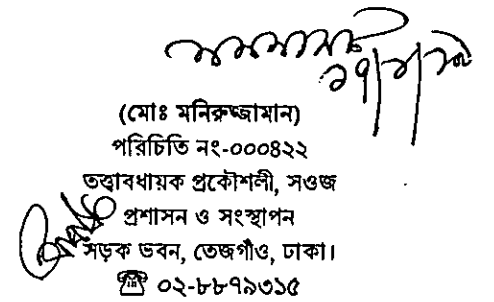 ২৭/১/২৫
(মোঃ মনিরুজ্জামান)
পরিচিতি নং-০০০৪২২
তত্ত্বাবধায়ক প্রকৌশলী, সওজ
প্রশাসন ও সংস্থাপন
সড়ক ভবন, তেজগাঁও, ঢাকা।
☎ ০২-৮৮৭৯৩১৫